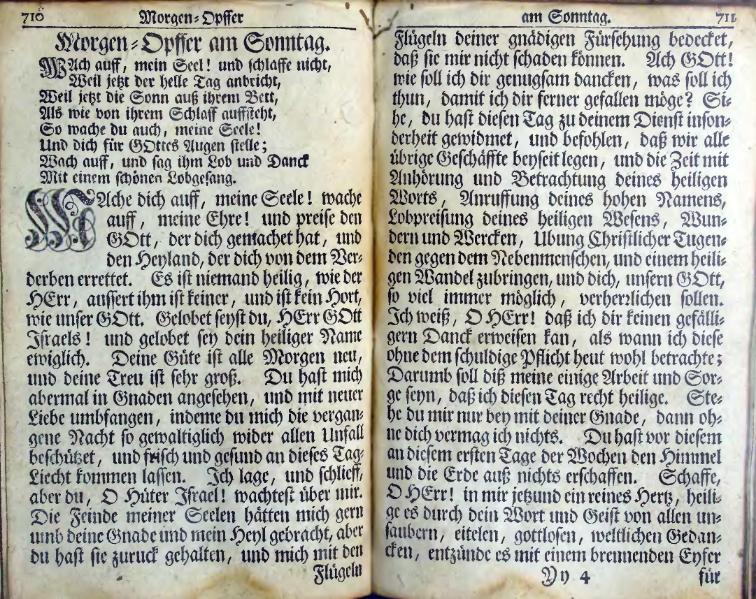 710 Morgen-Opffer
Morgen-Opffer am Sonntag.
WAch auff, mein Seel! und schlaffe nicht,
Weil jetzt der helle Tag anbricht,
Weil jetzt die Sonn auß ihrem Bett,
Als wie von ihrem Schlaff auffsteht,
So wache du auch, meine Seele!
Und dich für GOttes Augen stelle;
Wach auff, und sag ihm Lob und Danck
Mit einem schönen Lobgesang.
WAche dich auff, meine Seele! wache
auff, meine Ehre! und preise den
GOtt, der dich gemachet hat, und
den Heyland, der dich von dem Ver-
derben errettet. Es ist niemand heilig, wie der
HErr, aussert ihm ist keiner, und ist kein Hort,
wie unser GOtt. Gelobet seyst du, HErr GOtt
Israels! und gelobet sey dein heiliger Name
ewiglich. Deine Güte ist alle Morgen neu,
und deine Treu ist sehr groß. Du hast mich
abermal in Gnaden angesehen, und mit neuer
Liebe umbfangen, indeme du mich die vergan-
gene Nacht so gewaltiglich wider allen Unfall
beschützet, und frisch und gesund an dieses Tag-
Liecht kommen lassen. Ich lage, und schlieff,
aber du, O Hüter Israel! wachtest über mir.
Die Feinde meiner Seelen hätten mich gern
umb deine Gnade und mein Heyl gebracht, aber
du hast sie zuruck gehalten, und mich mit den
Flügeln
am Sonntag. 711
Flügeln deiner gnädigen Fürsehung bedecket,
daß sie mir nicht schaden können. Ach GOtt!
wie soll ich dir genugsam dancken, was soll ich
thun, damit ich dir ferner gefallen möge? Si-
he, du hast diesen Tag zu deinem Dienst inson-
derheit gewidmet, und befohlen, daß wir alle
übrige Geschäffte beyseit legen, und die Zeit mit
Anhörung und Betrachtung deines heiligen
Worts, Anruffung deines hohen Namens,
Lobpreisung deines heiligen Wesens, Wun-
dern und Wercken, Ubung Christlicher Tugen-
den gegen dem Nebenmenschen, und einem heili-
gen Wandel zubringen, und dich, unsern GOtt,
so viel immer möglich, verherzlichen sollen.
Ich weiß, O HErr! daß ich dir keinen gefälli-
gern Danck erweisen kan, als wann ich diese
ohne dem schuldige Pflicht heut wohl betrachte;
Darumb soll diß meine einige Arbeit und Sor-
ge seyn, daß ich diesen Tag recht heilige. Ste-
he du mir nur bey mit deiner Gnade, dann oh-
ne dich vermag ich nichts. Du hast vor diesem
an diesem ersten Tage der Wochen den Himmel
und die Erde auß nichts erschaffen. Schaffe,
O HErr! in mir jetzund ein reines Hertz, heili-
ge es durch dein Wort und Geist von allen un-
saubern, eitelen, gottlosen, weltlichen Gedan-
cken, entzünde es mit einem brennenden Eyfer
Yy 4 für